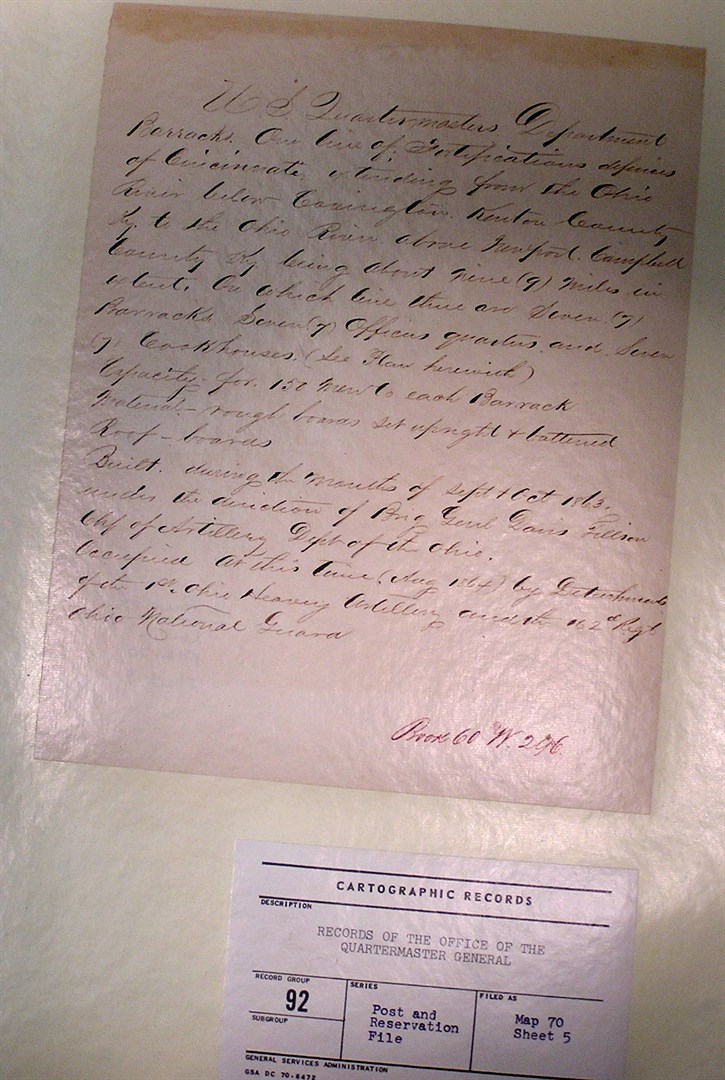 U.S. Quartermasters Department
Barracks. On line of Fortifications defences
of Cincinnati, extending from the Ohio
River below Covington. Kenton County
Ky. to the Ohio River above Newport. Campbell
County Ky being about nine (9) miles in
extent. On which line there are Seven (7)
Barracks Seven (7) Officers quarters and Seven
(7) Cookhouses. (See Plan herewith)
Capacity for 150 men to each Barrack
Material - rough boards set upright & battened
Roof - boards
Built. during the months of Sept & Oct 1863.
under the direction of Brig Genl Davis Tillson
Chf of Artillery Dept of the Ohio.
Occupied at this time (Aug 1864) by Detachments
of the 1st Ohio Heavy Artillery and the 162d Regt
Ohio National Guard
Book 60 W. 296
CARTOGRAPHIC RECORDS
DESCRIPTION
RECORDS OF THE OFFICE OF THE
QUARTERMASTER GENERAL
RECORD GROUP
92
SUBGROUP
SERIES
Post and
Reservation
File
FILED AS
Map 70
Sheet 5
GENERAL SERVICES ADMINISTRATION
GSA DC 70-6472